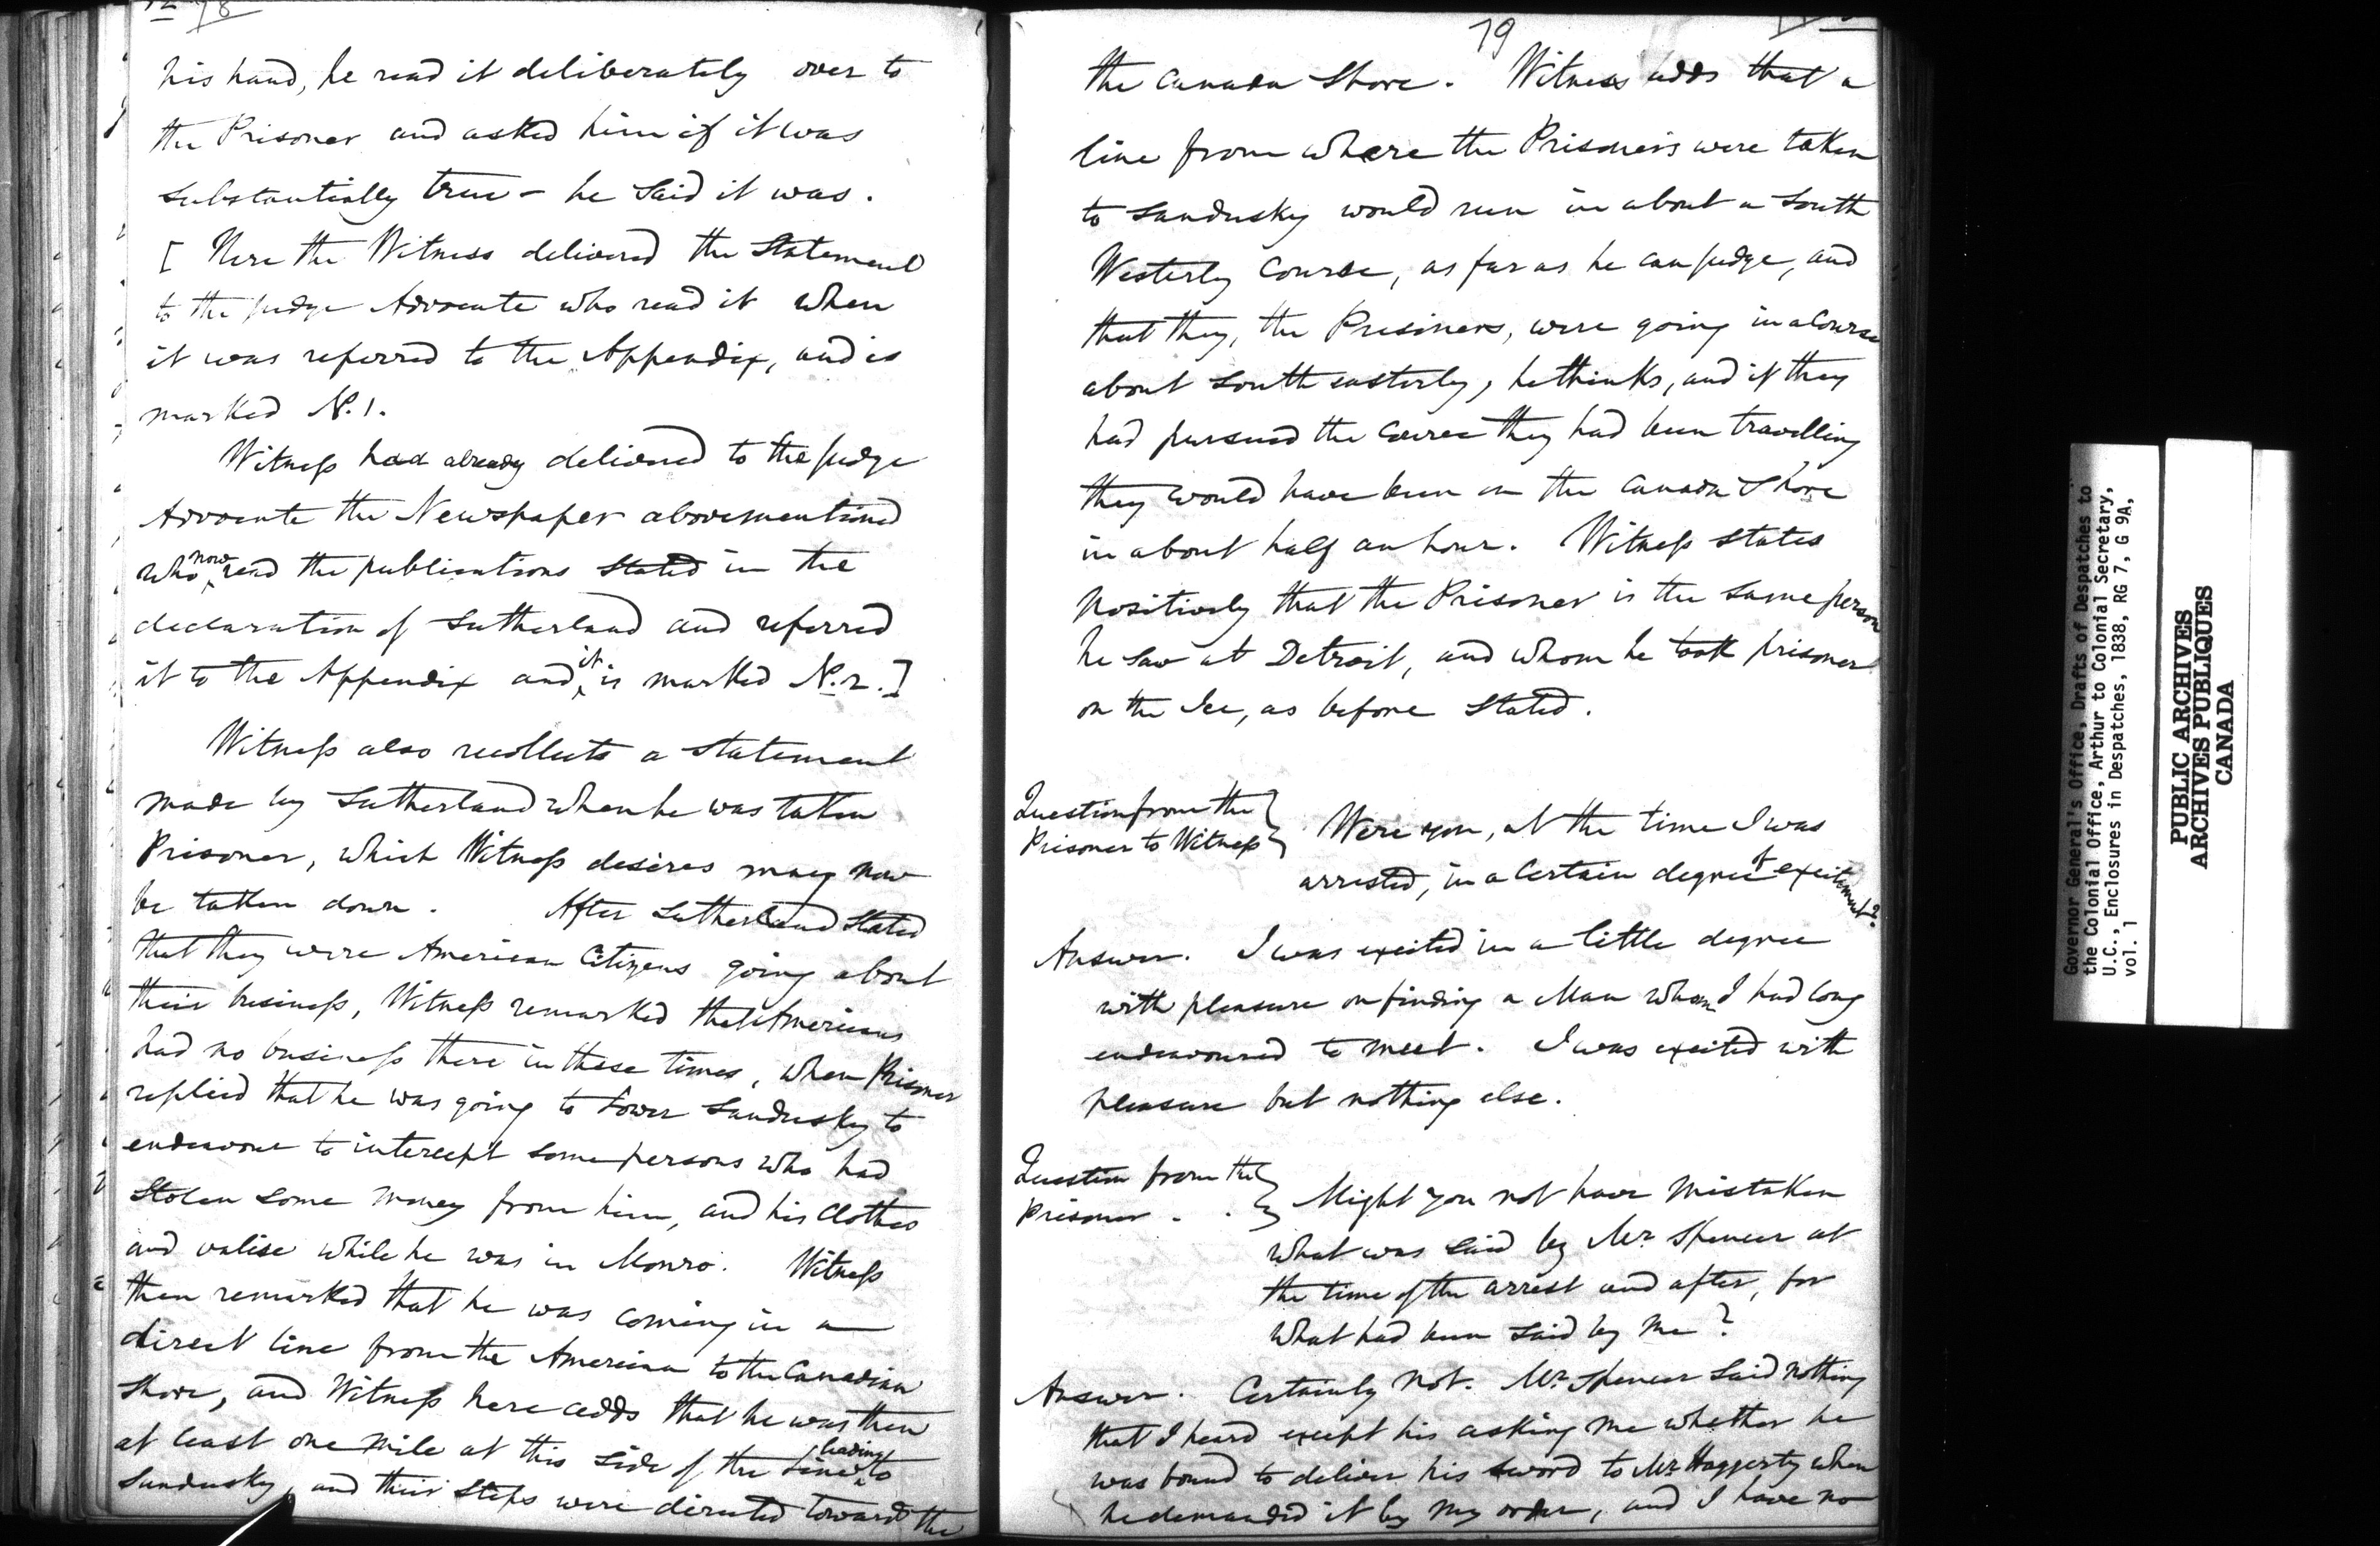 78
his hand, he read it deliberately over to
the Prisoner and asked him if it was
substantially true – he said it was.
[ Here the Witness delivered the Statement
to the Judge Advocate who read it when
it was referred to the Appendix, and is
marked No. 1.
Witness had already delivered to the Judge
Advocate the Newspaper abovementioned
who now read the publications stated in the
declaration of Sutherland and referred
it to the Appendix and it is marked No. 2. ]
Witness also recollects a statement
made by Sutherland when he was taken
Prisoner, which Witness desires may now
be taken down. After Sutherland stated
that they were American Citizens going about
their business, Witness remarked that Americans
had no business there in these times, when Prisoner
replied that he was going to Lower Sandusky to
endeavour to intercept some persons who had
stolen some money from him, and his clothes
and valise while he was in Monro. Witness
then remarked that he was coming in a
direct line from the American to the Canadian
Shore, and Witness here adds that he was then
at least one mile at this side of the line leading to
Sandusky, and their steps were directed towards the
79
the Canada Shore. Witness adds that a
line from where the Prisoners were taken
to Sandusky would run in about a South
Westerly Course, as far as he can judge, and
that they, the Prisoners, were going in a Course
about South easterly, he thinks, and if they
had pursued the course they had been travelling
they would have been on the Canada Shore
in about half an hour. Witness states
positively that the Prisoner is the same person
he saw at Detroit, and whom he took prisoner
on the Ice, as before stated.
Question from the
Prisoner to Witness } Were you, at the time I was
arrested, in a certain degree of excitement?
Answer. I was excited in a little degree
with pleasure on finding a Man whom I had long
endeavoured to meet. I was excited with
pleasure but nothing else.
Question from the
Prisoner . . } Might you not have mistaken
what was said by Mr. Spencer at
the time of the arrest and after, for
what had been said by me?
Answer. Certainly not. Mr. Spencer said nothing
that I heard except his asking me whether he
was bound to deliver his sword to Mr. Haggerty when
he demanded it by my order, and I have no
Governor General's Office, Drafts of Despatches to
the Colonial Office, Arthur to Colonial Secretary,
U.C., Enclosures in Despatches, 1838, RG 7, G 9A,
vol. 1
PUBLIC ARCHIVES
ARCHIVES PUBLIQUES
CANADA